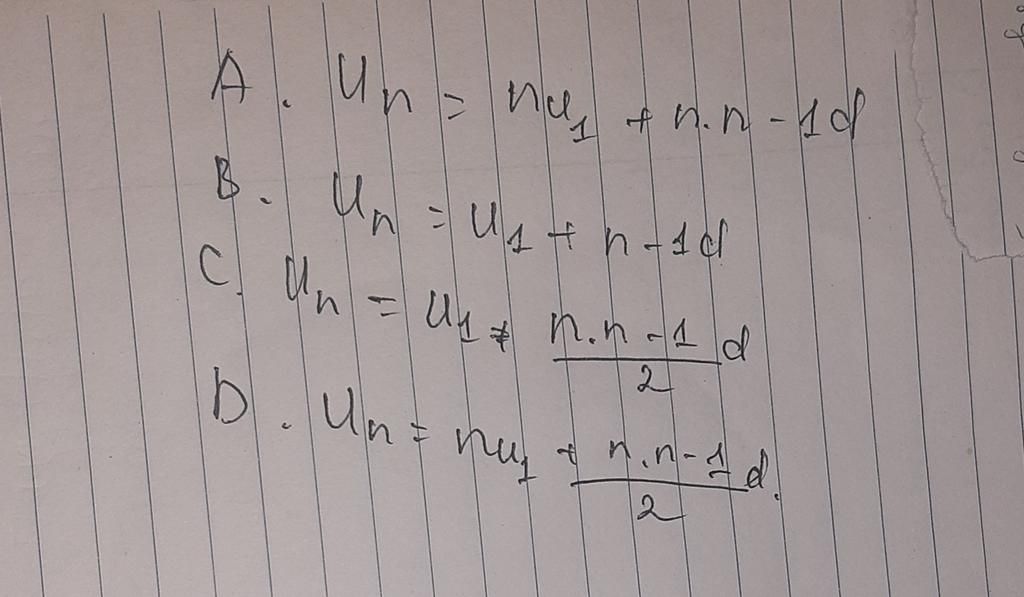 A. Un = nu1 + n.n - 1d
B. Un = U1 + n - 1d
C. Un = U1 + n.n - 1/2 d
D. Un = nu1 + n.n - 1/2 d.